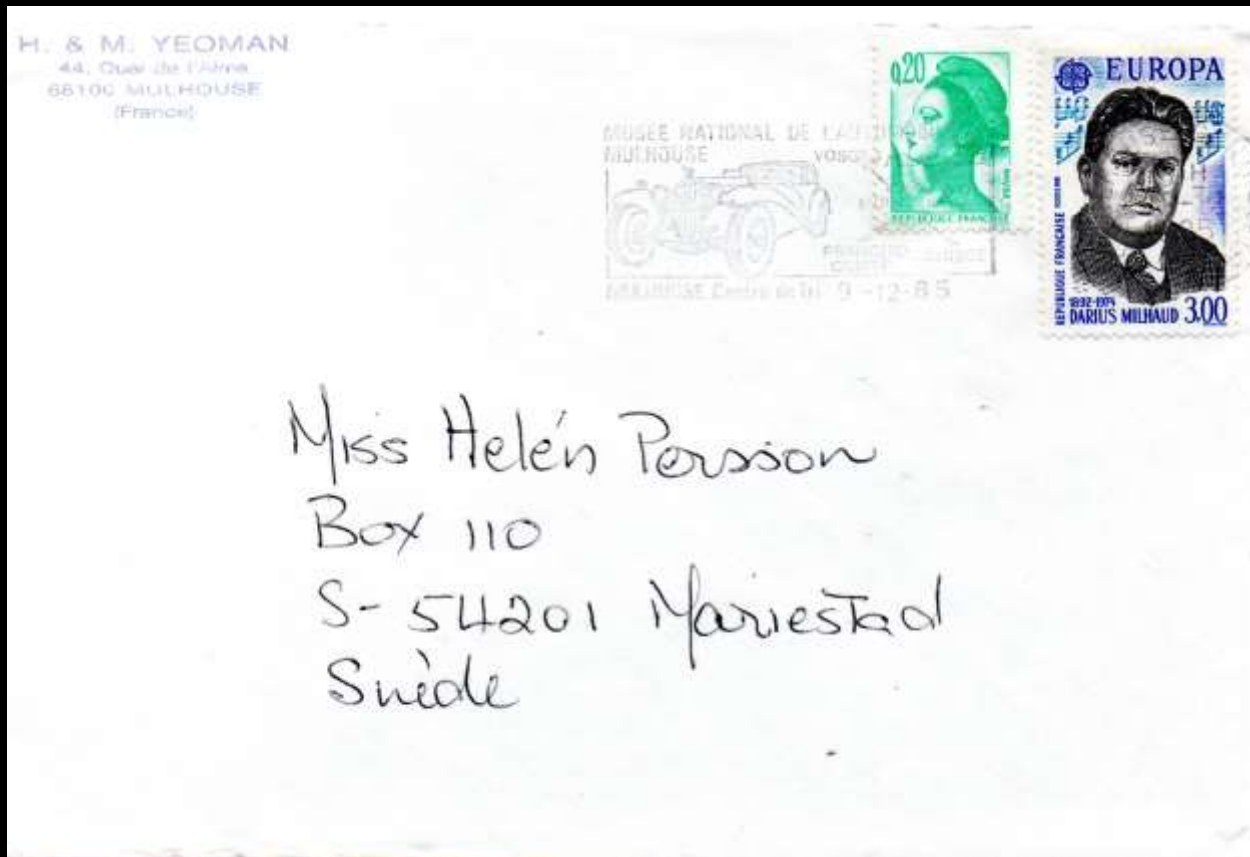 H. & M. YEOMAN
44, Quai de l'Alma
68100 MULHOUSE
(France)
MUSEE NATIONAL DE L'AUTOMOBILE
MULHOUSE
MULHOUSE Centre de Tri 9-12-85
0,20
REPUBLIQUE FRANCAISE
EUROPA
REPUBLIQUE FRANÇAISE
1892-1974
DARIUS MILHAUD 3.00
Miss Helén Persson
Box 110
S- 54201 Mariestad
Suède